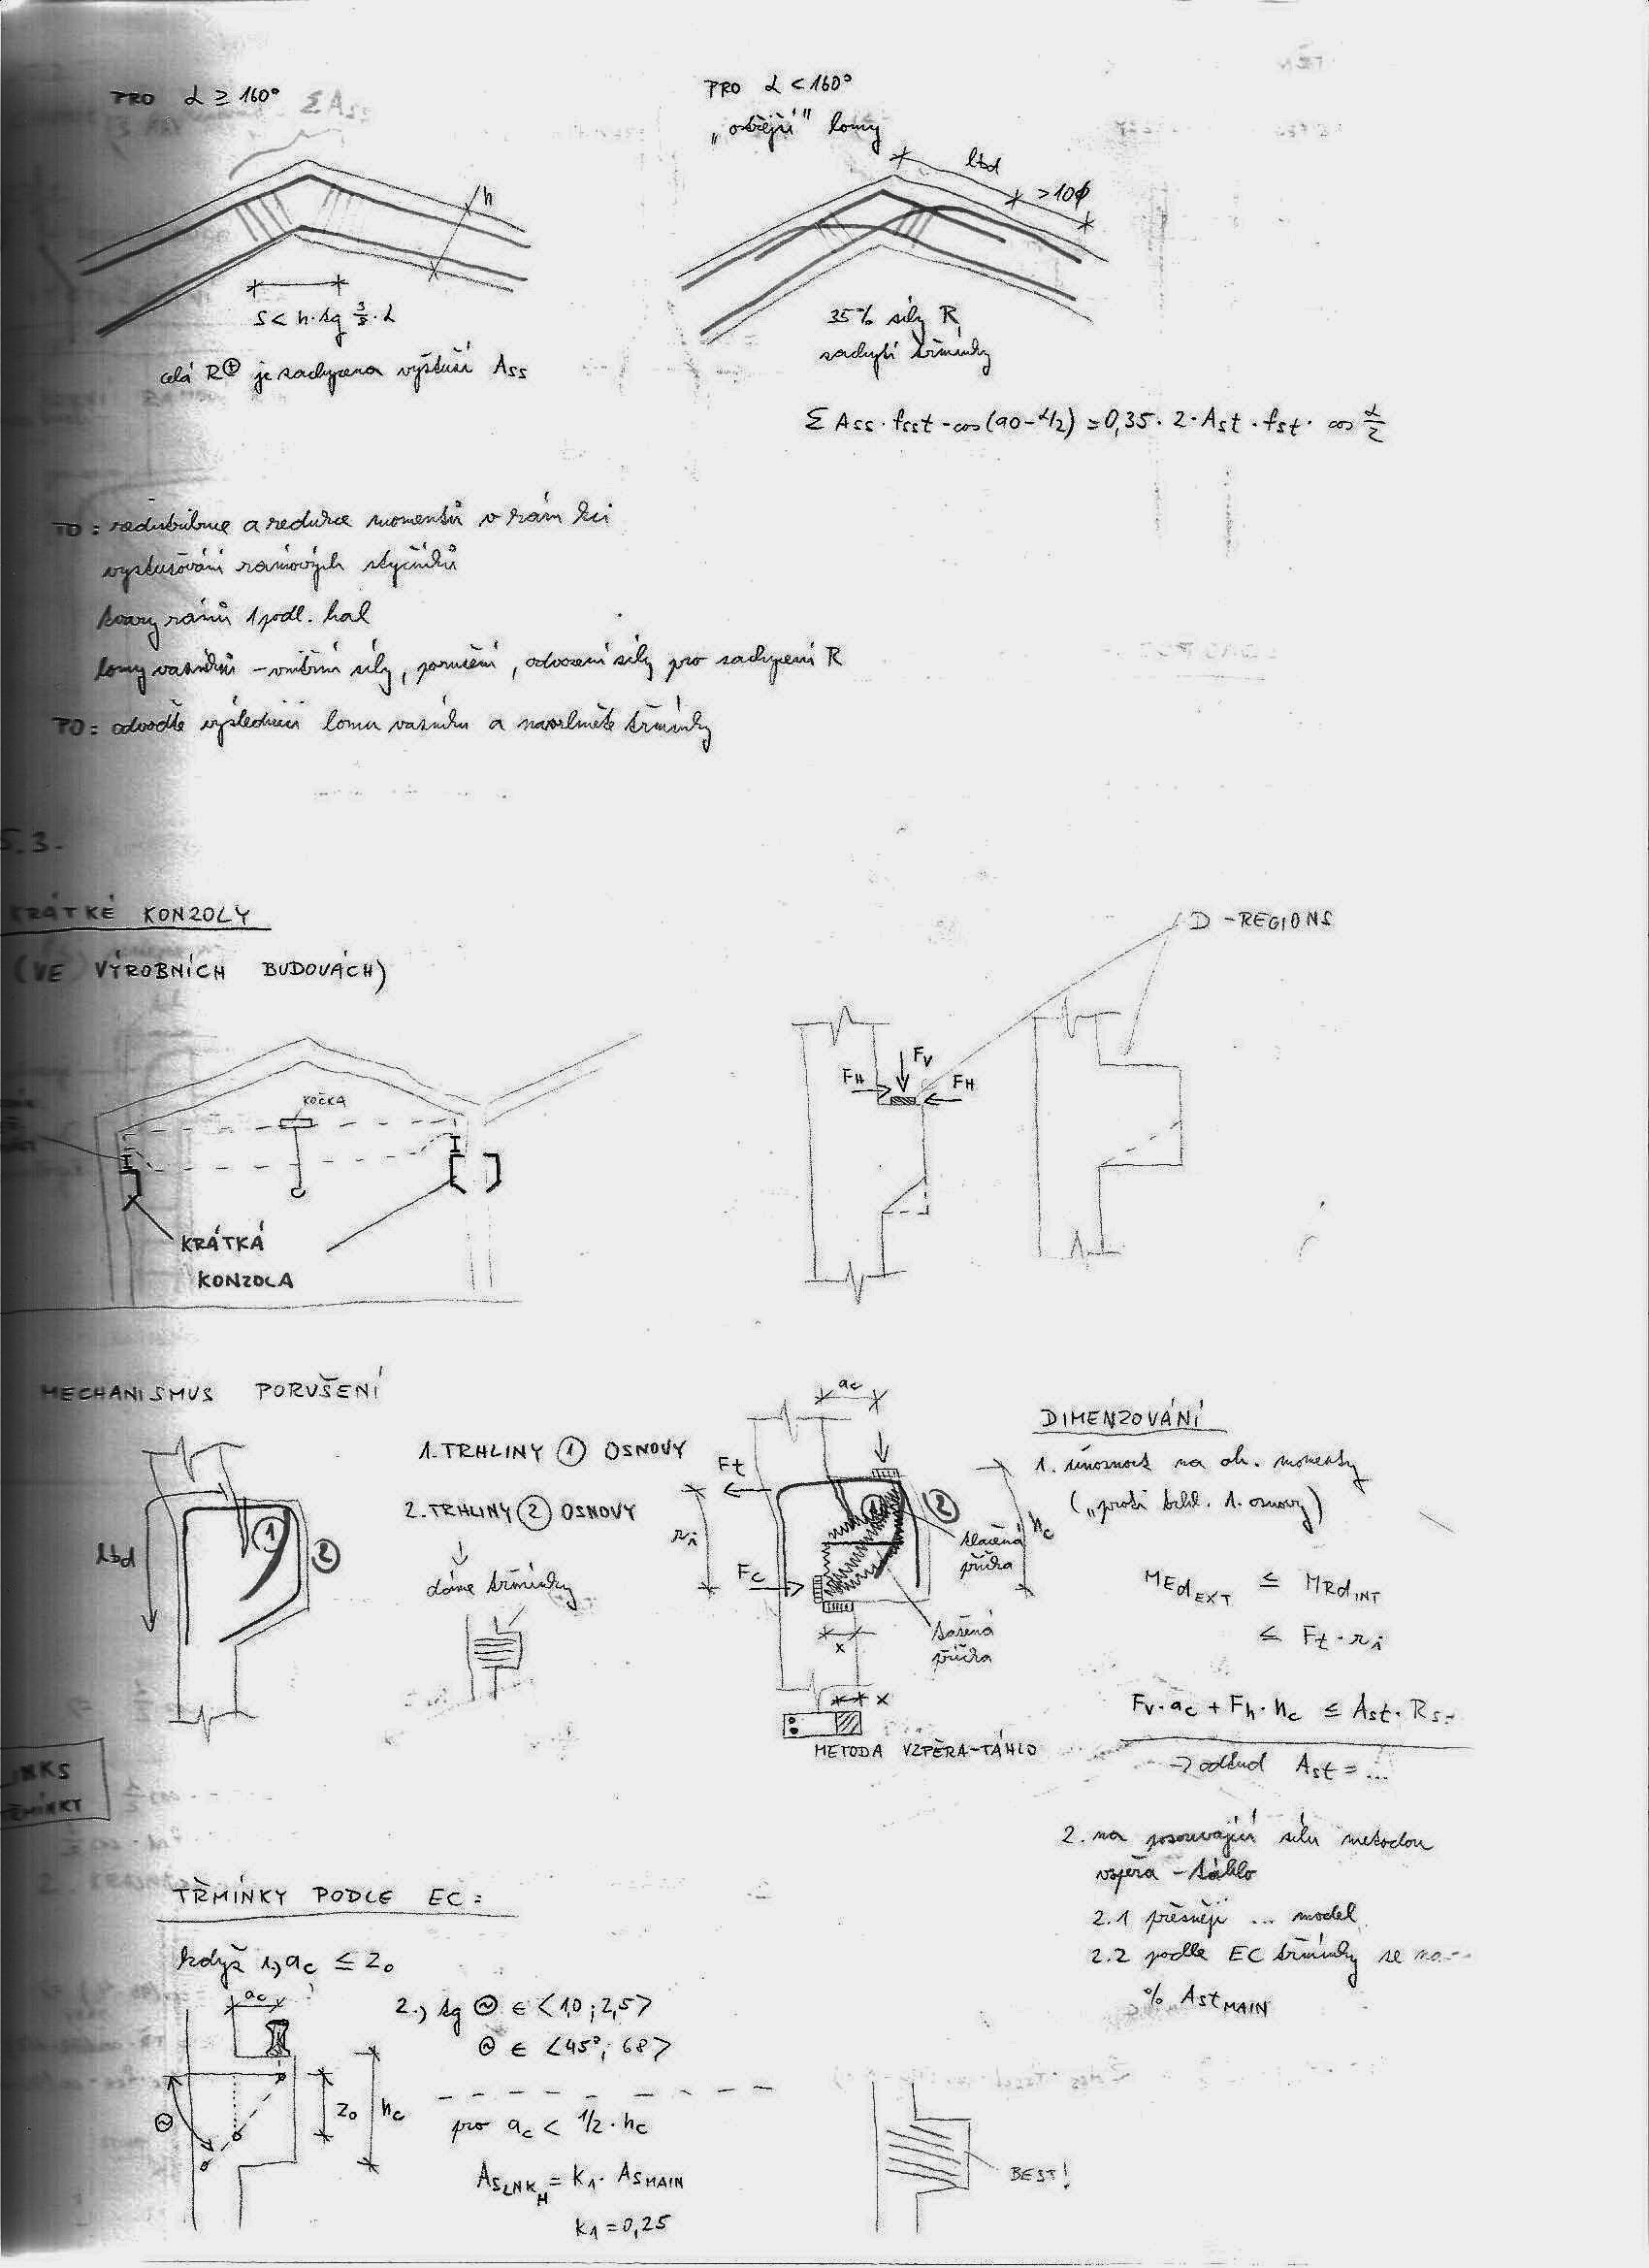 PRO α ≥ 160°
h
S < h·tg 3/8·α
celá R⊕ je zachycena výztuží Ass
PRO α < 160°
„ostřejší" lomy
lbd
>10ϕ
35% síly R
zachytí třmínky
Σ Ass · fsst · cos(90-α/2) = 0,35 · 2 · Ast · fst · cos α/2
TO: redistribuce a redukce momentů v rám. kci
vyztužování rámových styčníků
tvary rámů 1podl. hal
lomy vazníků - vnitřní síly, porušení, odvození síly pro zachycení R
PO: odvoďte výslednici lomu vazníku a navrhněte třmínky
5.3.
KRÁTKÉ KONZOLY
(VE VÝROBNÍCH BUDOVÁCH)
KOČKA
KRÁTKÁ
KONZOLA
D-REGIONS
FH
FV
FH
MECHANISMUS PORUŠENÍ
lbd
1
2
1. TRHLINY ① OSNOVY
2. TRHLINY ② OSNOVY
dáme třmínky
ac
Ft
Fc
1
2
hc
tlačená
příčka
tažená
příčka
x
x
METODA VZPĚRA-TÁHLO
DIMENZOVÁNÍ
1. únosnost na oh. momenty
(„proti trhl. 1. osnovy)
MEdEXT ≤ MRdINT
≤ Ft · ri
Fv·ac + Fh·hc ≤ Ast·Rs
→ odtud Ast = ...
2. na posouvající sílu metodou
vzpěra - táhlo
2.1 přesněji ... model
2.2 podle EC třmínky se
% AstMAIN
TŘMÍNKY PODLE EC:
když 1.) ac ≤ z0
2.) tg Θ ∈ <1,0 ; 2,5>
Θ ∈ <45°; 68>
ac
Θ
z0
hc
pro ac < 1/2 · hc
AsLNKH = k1 · AsMAIN
k1 = 0,25
BEST!